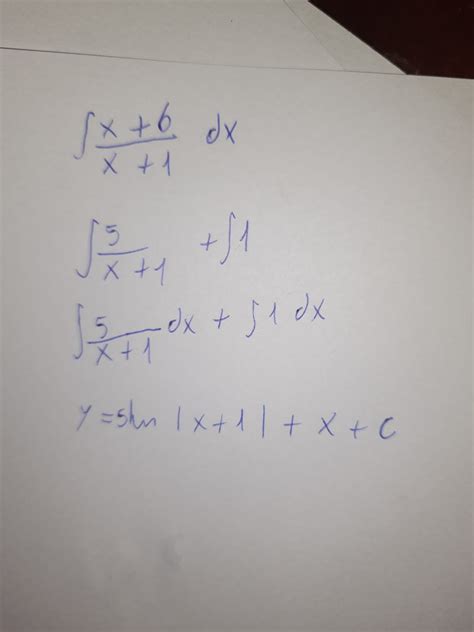 ∫ x + 6 / x + 1 dx
∫ 5 / x + 1 + ∫ 1
∫ 5 / x + 1 dx + ∫ 1 dx
y = 5ln |x + 1| + x + c